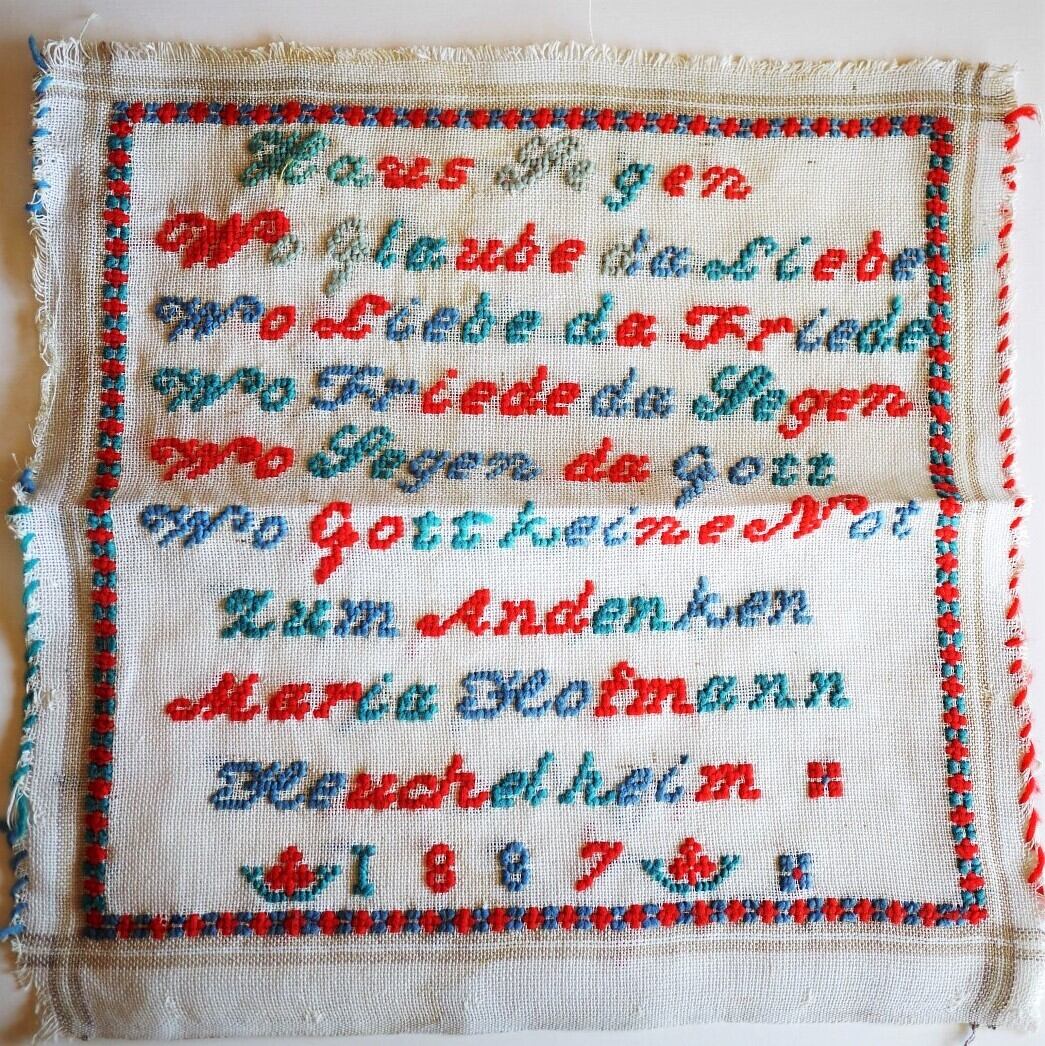 Haus Segen
Wo Glaube da Liebe
Wo Liebe da Friede
Wo Friede da Segen
Wo Segen da Gott
Wo Gott keine Not
Zum Andenken
Maria Hofmann
Heuchelheim
1887